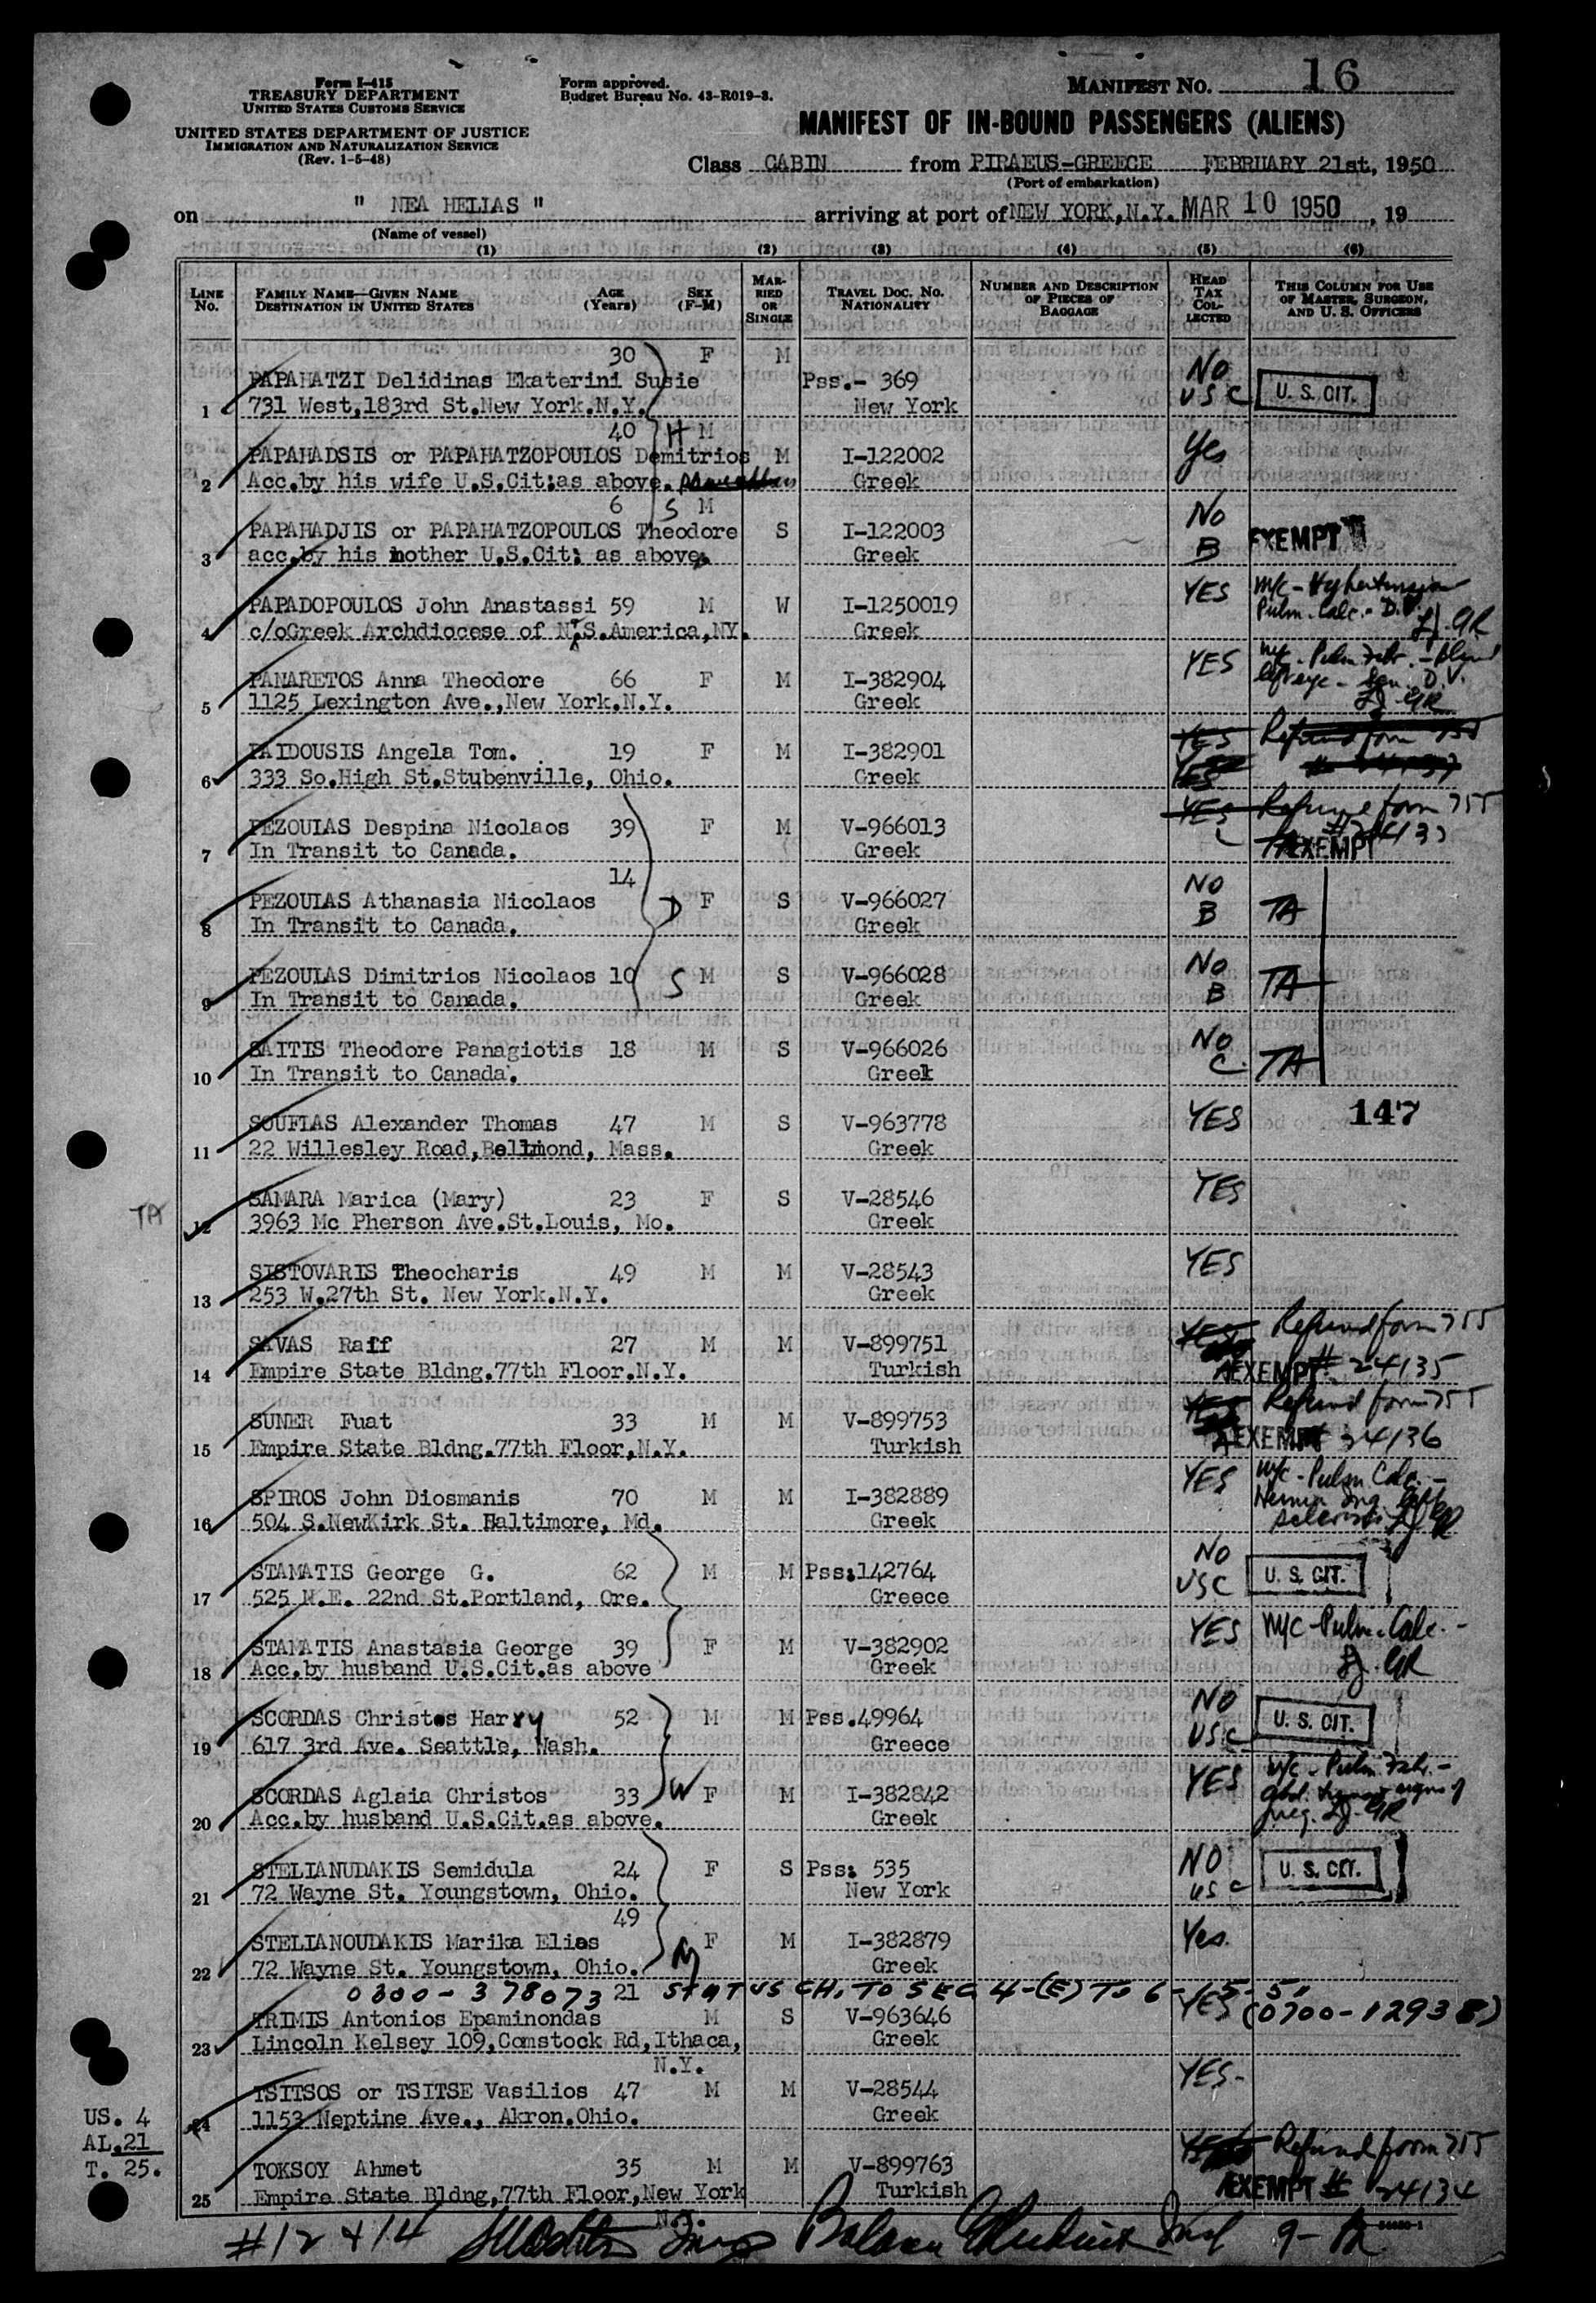 Form I-415
TREASURY DEPARTMENT
UNITED STATES CUSTOMS SERVICE
UNITED STATES DEPARTMENT OF JUSTICE
IMMIGRATION AND NATURALIZATION SERVICE
(Rev. 1-5-48)
Form approved.
Budget Bureau No. 43-R019-3.
MANIFEST NO. 16
MANIFEST OF IN-BOUND PASSENGERS (ALIENS)
Class CABIN from PIRAEUS-GREECE FEBRUARY 21st, 1950
(Port of embarkation)
on " NEA HELIAS " arriving at port of NEW YORK,N.Y. MAR 10 1950, 19
(Name of vessel)
(1) (2) (3) (4) (5) (6)
LINE No. FAMILY NAME—GIVEN NAME DESTINATION IN UNITED STATES AGE (Years) SEX (F-M) MARRIED OR SINGLE TRAVEL DOC. NO. NATIONALITY NUMBER AND DESCRIPTION OF PIECES OF BAGGAGE HEAD TAX COLLECTED THIS COLUMN FOR USE OF MASTER, SURGEON, AND U. S. OFFICERS
30 F M No
PAPAHATZI Delidinas Ekaterini Susie Pss.- 369
1 731 West,183rd St.New York.N.Y. New York USC U. S. CIT.
40 H M
PAPAHADSIS or PAPAHATZOPOULOS Demitrios M I-122002 Yes
2 Acc.by his wife U.S.Cit:as above. Greek
6 S M No
PAPAHADJIS or PAPAHATZOPOULOS Theodore S I-122003 EXEMPT
3 acc.by his mother U.S.Cit: as above. Greek B
PAPADOPOULOS John Anastassi 59 M W I-1250019 YES M/C - Hypertension
Pulm. Calc. - D.V.
4 c/oGreek Archdiocese of N.S.America,NY. Greek GR
PANARETOS Anna Theodore 66 F M I-382904 YES
5 1125 Lexington Ave.,New York.N.Y. Greek GR
PAIDOUSIS Angela Tom. 19 F M I-382901 YES Refund form 755
6 333 So.High St.Stubenville, Ohio. Greek YES
PEZOULAS Despina Nicolaos 39 F M V-966013 YES Refund form 755
7 In Transit to Canada. Greek C TA EXEMPT
14
PEZOULAS Athanasia Nicolaos D F S V-966027 NO
8 In Transit to Canada. Greek B TA
PEZOULAS Dimitrios Nicolaos 10 S M S V-966028 No
9 In Transit to Canada. Greek B TA
SAITIS Theodore Panagiotis 18 M S V-966026 No
10 In Transit to Canada. Greek C TA
SOUFLAS Alexander Thomas 47 M S V-963778 YES 147
11 22 Willesley Road,Bellmond, Mass. Greek
TA
SAMARA Marica (Mary) 23 F S V-28546 YES
12 3963 Mc Pherson Ave.St.Louis, Mo. Greek
SISTOVARIS Theocharis 49 M M V-28543 YES
13 253 W.27th St. New York.N.Y. Greek
SAVAS Raff 27 M M V-899751 YES Refund form 755
14 Empire State Bldng.77th Floor.N.Y. Turkish EXEMPT # 24135
SUNER Fuat 33 M M V-899753 YES Refund form 755
15 Empire State Bldng.77th Floor,N.Y. Turkish EXEMPT 24136
SPIROS John Diosmanis 70 M M I-382889 YES M/C - Pulm Calc. -
16 504 S.NewKirk St. Baltimore, Md. Greek
STAMATIS George G. 62 M M Pss:142764 NO
17 525 N.E. 22nd St.Portland, Ore. Greece USC U. S. CIT.
STAMATIS Anastasia George 39 F M V-382902 YES M/C - Pulm. Calc. -
18 Acc.by husband U.S.Cit.as above Greek GR
SCORDAS Christos Harry 52 M M Pss.49964 NO
19 617 3rd Ave. Seattle, Wash. Greece USC U. S. CIT.
SCORDAS Aglaia Christos 33 W F M I-382842 YES
20 Acc.by husband U.S.Cit.as above. Greek GR
STELIANUDAKIS Semidula 24 F S Pss: 535 NO
21 72 Wayne St. Youngstown, Ohio. New York USC U. S. CIT.
49
STELIANOUDAKIS Marika Elias M F M I-382879 Yes.
22 72 Wayne St. Youngstown, Ohio. Greek
0300-378073 21 STATUS CH. TO SEC 4-(E) TO 6-15-51
TRIMIS Antonios Epaminondas M S V-963646 YES (0700-12938)
23 Lincoln Kelsey 109,Comstock Rd,Ithaca, Greek
N.Y.
TSITSOS or TSITSE Vasilios 47 M M V-28544 YES-
24 1153 Neptine Ave., Akron.Ohio. Greek
TOKSOY Ahmet 35 M M V-899763 YES Refund form 755
25 Empire State Bldng,77th Floor,New York Turkish EXEMPT # 24134
N.Y.
US. 4
AL.21
T. 25.
#12 + 14